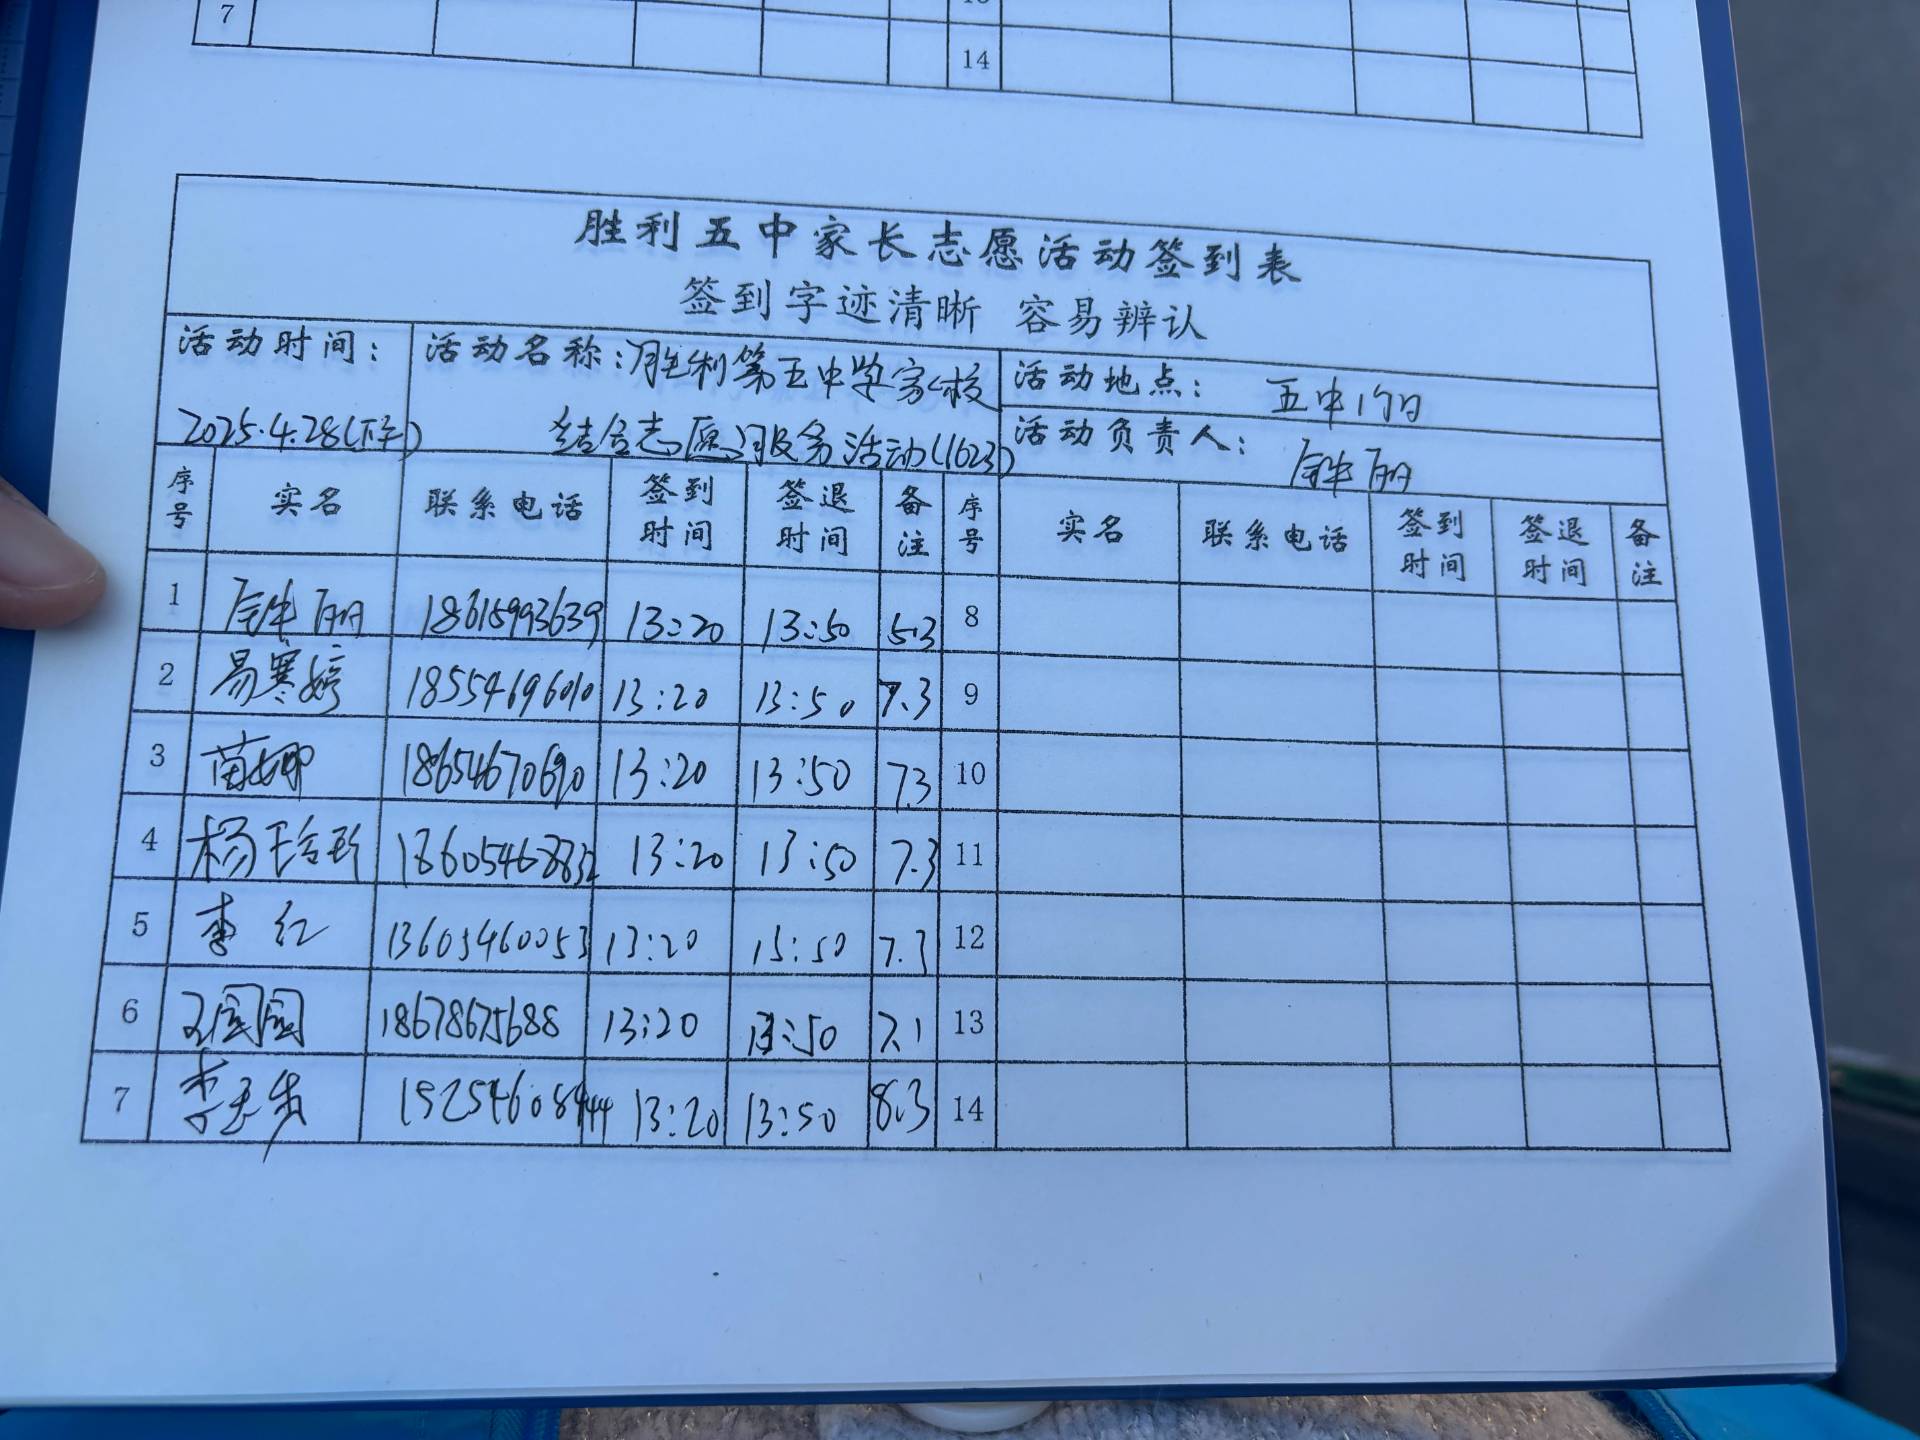 7
14
胜利五中家长志愿活动签到表
签到字迹清晰 容易辨认
活动时间：
2025.4.28(下午)
活动名称：胜利第五中学家校
结合志愿服务活动(1623)
活动地点： 五中门口
活动负责人： 丽
序号 实名 联系电话 签到时间 签退时间 备注 序号 实名 联系电话 签到时间 签退时间 备注
1 丽 18615993639 13:20 13:50 5.3 8
2 易寒婷 18554696010 13:20 13:50 7.3 9
3 苗娜 18654670690 13:20 13:50 7.3 10
4 杨玲玲 18605468832 13:20 13:50 7.3 11
5 李红 13605460053 13:20 13:50 7.3 12
6 王园园 18678675688 13:20 13:50 7.1 13
7 李 15254608444 13:20 13:50 8.3 14